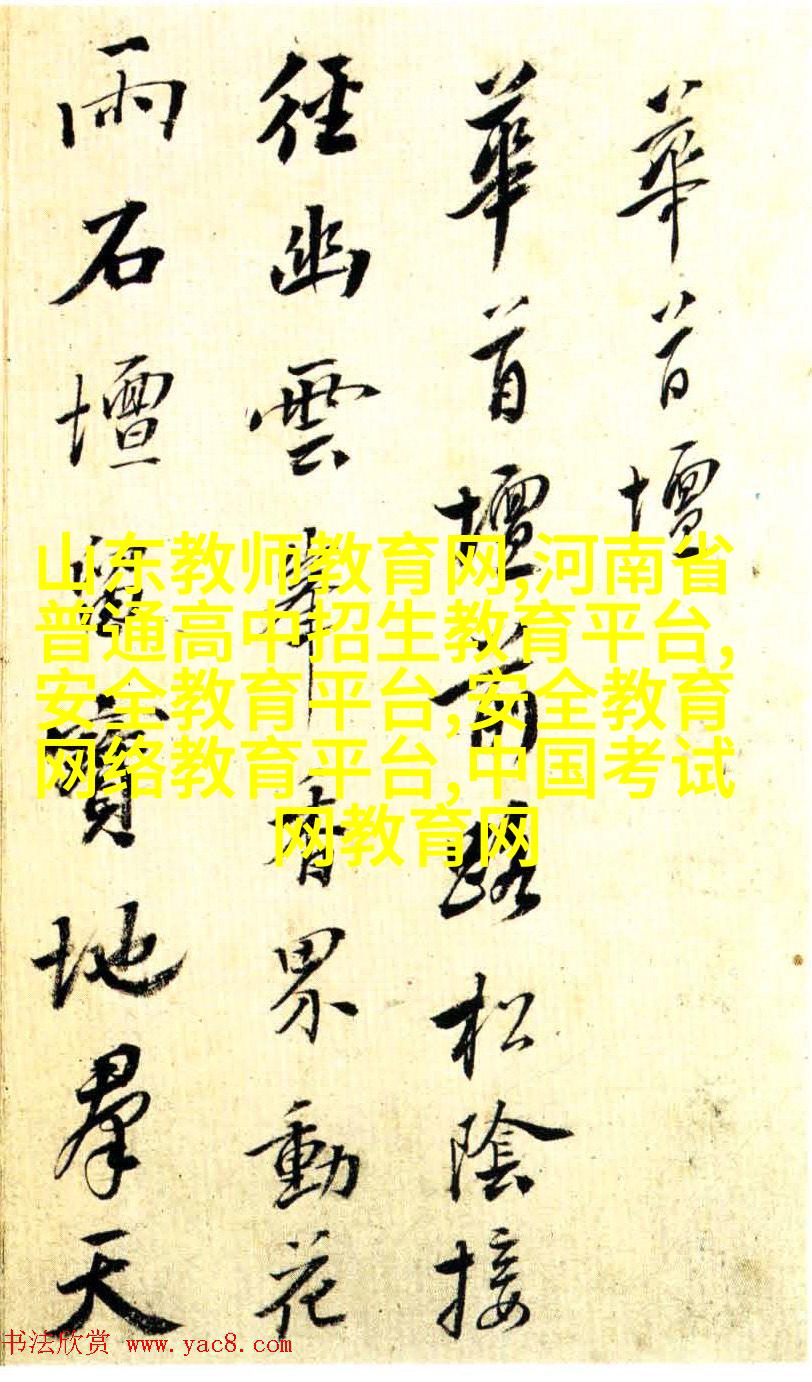 華首壇
華首壇前路松陰接
徑幽雲峯香界動花
雨石壇留寶地羣天
山东教师教育网,河南省
普通高中招生教育平台,
安全教育平台,安全教育
网络教育平台,中国考试
网教育网
书法欣赏 www.yac8.com